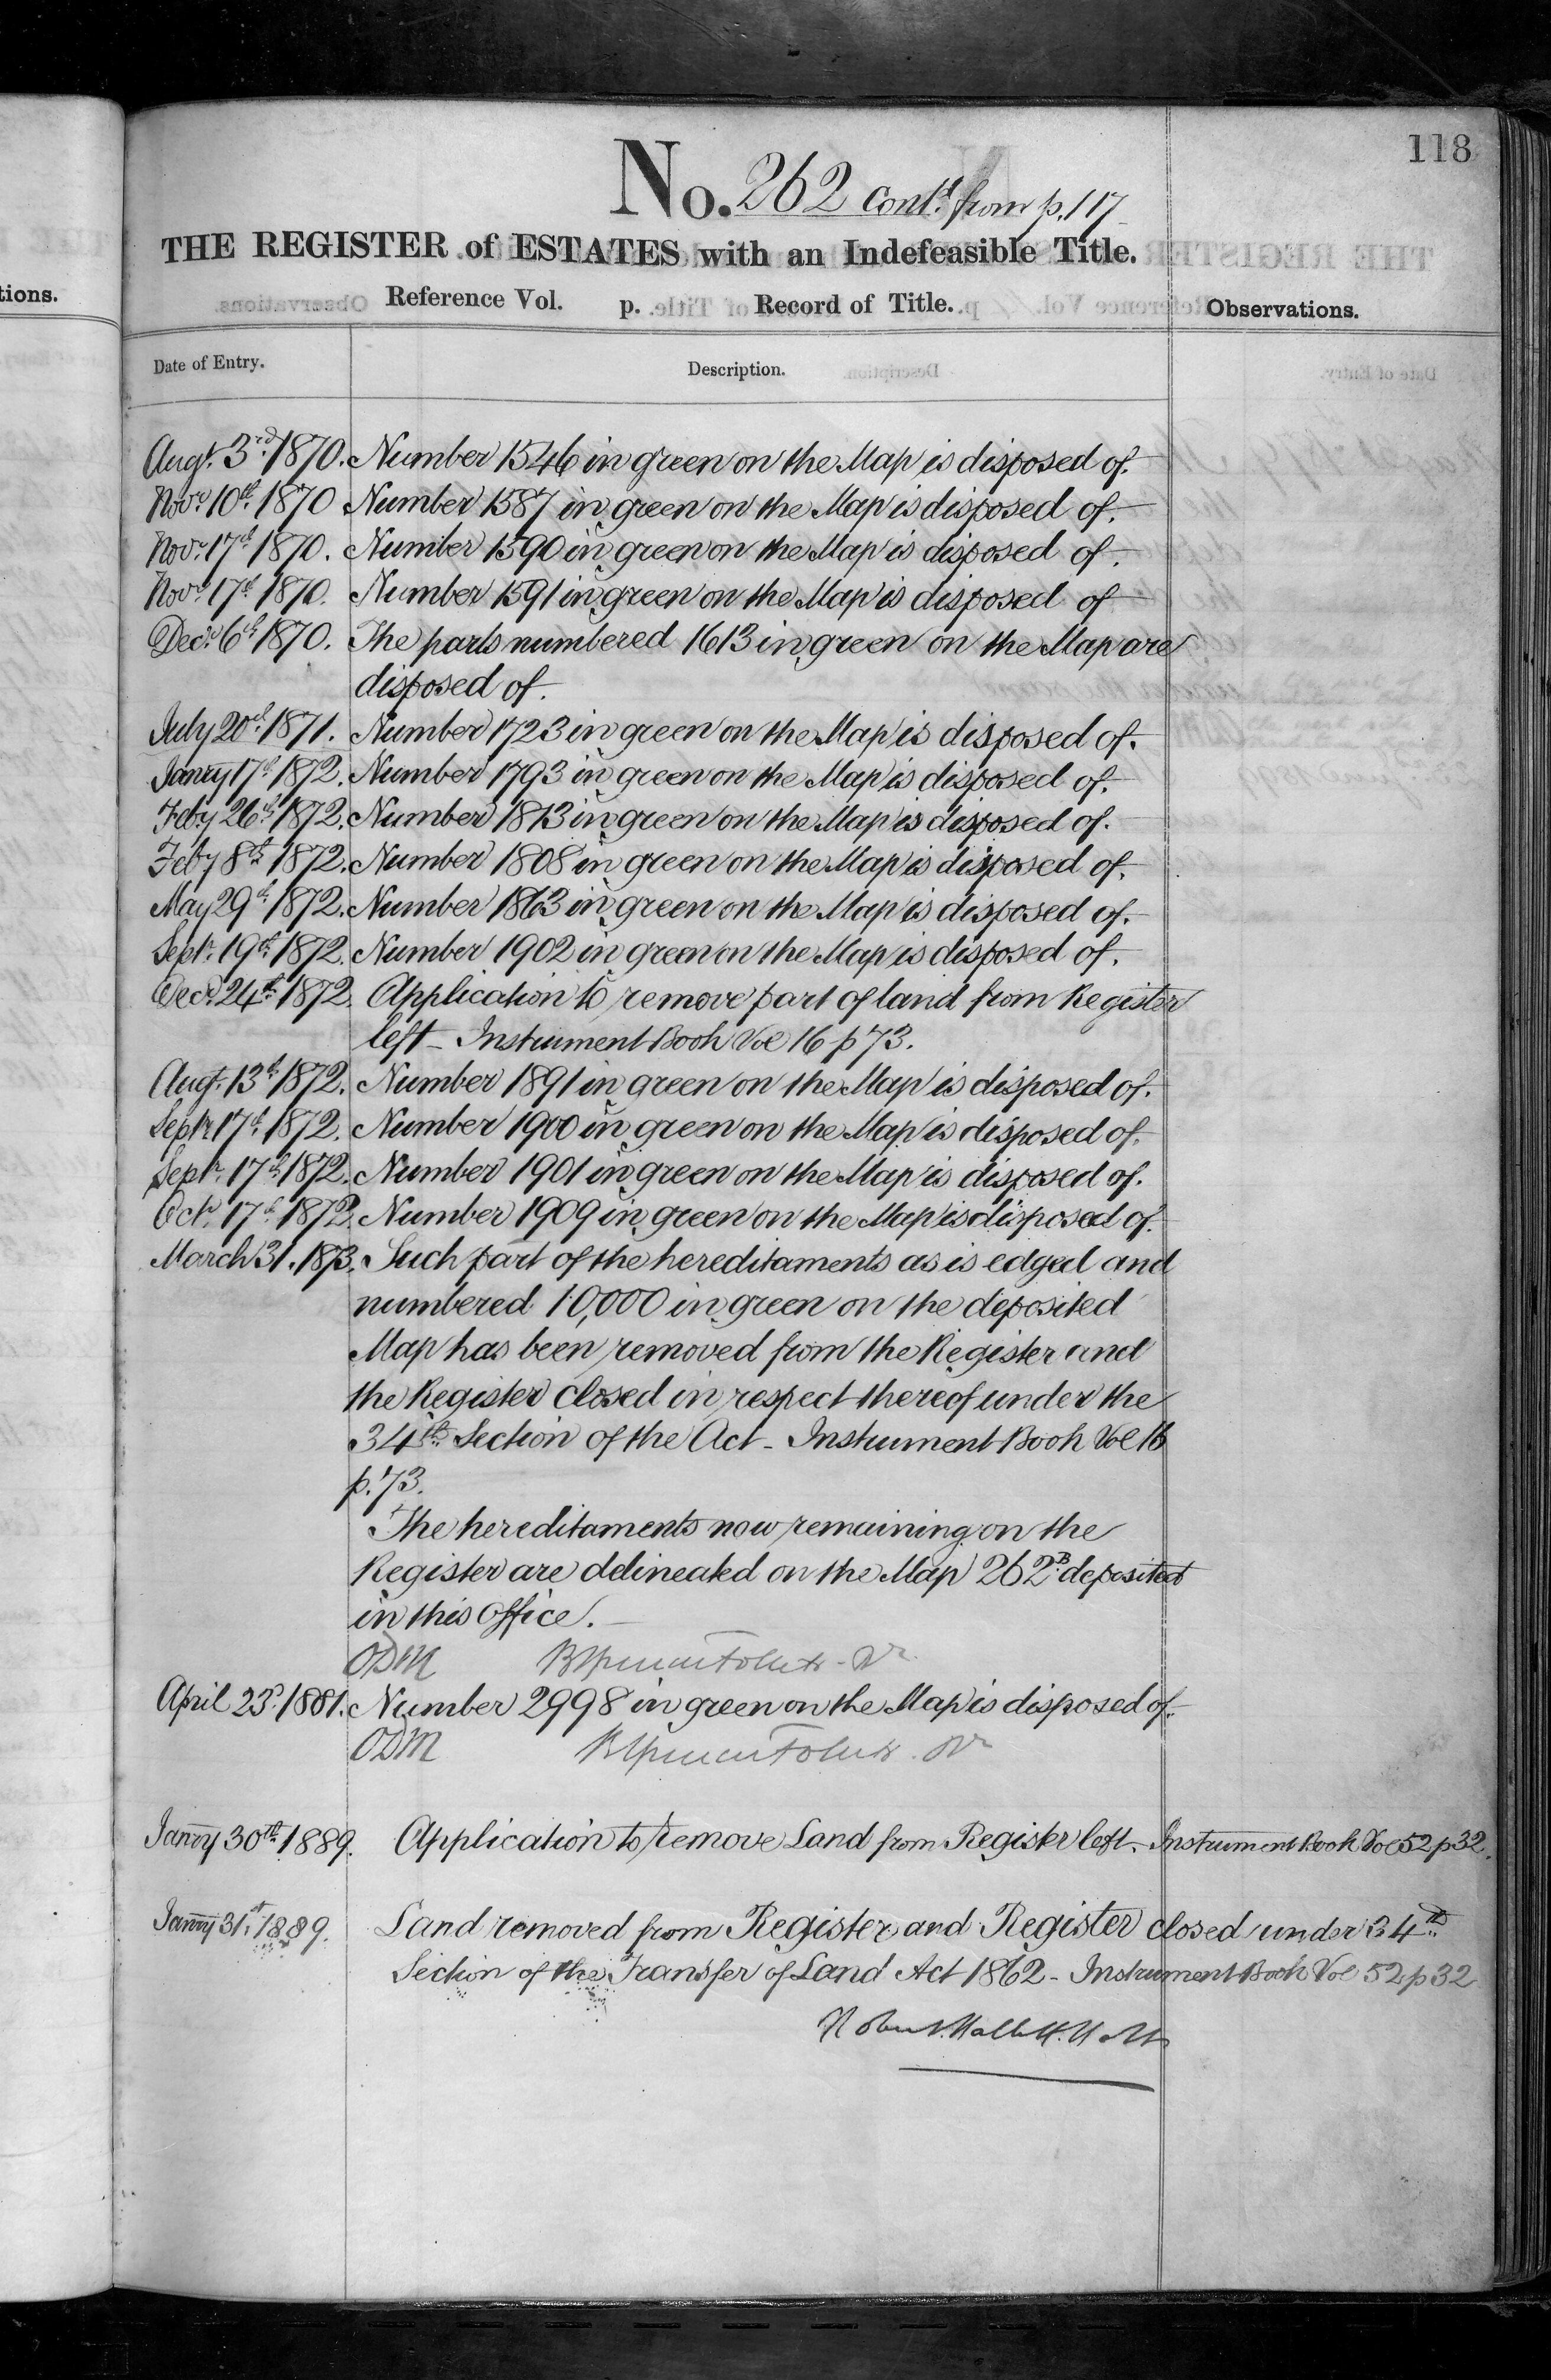 tions.
118
No. 262 contd. from p. 117
THE REGISTER of ESTATES with an Indefeasible Title.
Reference Vol. p. Record of Title.
Observations.
Date of Entry. Description.
Augt. 3rd 1870. Number 1546 in green on the Map is disposed of.
Novr. 10th 1870 Number 1587 in green on the Map is disposed of.
Novr. 17th 1870. Number 1590 in green on the Map is disposed of.
Novr. 17th 1870. Number 1591 in green on the Map is disposed of
Decr. 6th 1870. The parts numbered 1613 in green on the Map are
disposed of.
July 20th 1871. Number 1723 in green on the Map is disposed of.
Janry 17th 1872. Number 1793 in green on the Map is disposed of.
Feby 26th 1872. Number 1813 in green on the Map is disposed of.
Feby 8th 1872. Number 1808 in green on the Map is disposed of.
May 29th 1872. Number 1863 in green on the Map is disposed of.
Septr. 19th 1872. Number 1902 in green on the Map is disposed of.
Decr. 24th 1872. Application to remove part of land from Register
left - Instrument Book Vol 16 p 73.
Augt. 13th 1872. Number 1891 in green on the Map is disposed of.
Septr 17th 1872. Number 1900 in green on the Map is disposed of.
Septr. 17th 1872. Number 1901 in green on the Map is disposed of.
Octr. 17th 1872. Number 1909 in green on the Map is disposed of.
March 31. 1873. Such part of the hereditaments as is edged and
numbered 10,000 in green on the deposited
Map has been removed from the Register and
the Register closed in respect thereof under the
34th Section of the Act - Instrument Book Vol 16
p. 73.
The hereditaments now remaining on the
Register are delineated on the Map 262B deposited
in this Office.
ODM
April 23d. 1881. Number 2998 in green on the Map is disposed of.
ODM
Janry 30th 1889. Application to remove Land from Register left. Instrument Book Vol 52 p 32.
Janry 31st 1889. Land removed from Register and Register closed under 34th
Section of the Transfer of Land Act 1862 - Instrument Book Vol 52 p 32